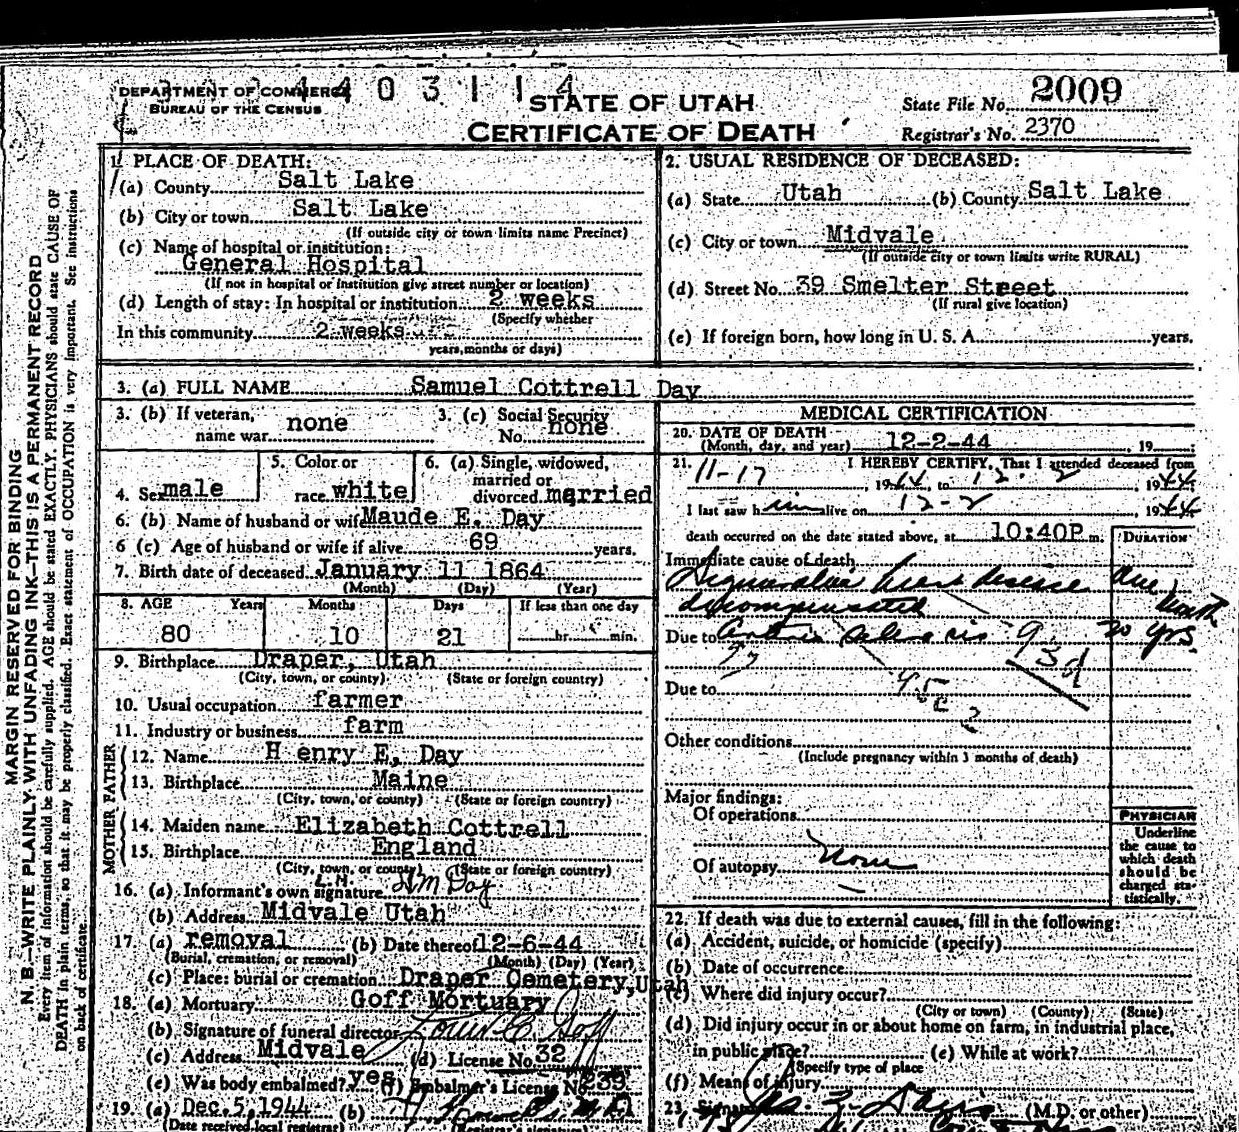 DEPARTMENT OF COMMERCE
BUREAU OF THE CENSUS
4 4 0 3 1 1 4
STATE OF UTAH
CERTIFICATE OF DEATH
State File No. 2009
Registrar's No. 2370
MARGIN RESERVED FOR BINDING
N. B.—WRITE PLAINLY, WITH UNFADING INK—THIS IS A PERMANENT RECORD
Every item of information should be carefully supplied. AGE should be stated EXACTLY. PHYSICIANS should state CAUSE OF
DEATH in plain terms, so that it may be properly classified. Exact statement of OCCUPATION is very important. See instructions
on back of certificate.
1. PLACE OF DEATH:
(a) County Salt Lake
(b) City or town Salt Lake
(If outside city or town limits name Precinct)
(c) Name of hospital or institution:
General Hospital
(If not in hospital or institution give street number or location)
(d) Length of stay: In hospital or institution 2 weeks
(Specify whether
In this community 2 weeks
years, months or days)
2. USUAL RESIDENCE OF DECEASED:
(a) State Utah (b) County Salt Lake
(c) City or town Midvale
(If outside city or town limits write RURAL)
(d) Street No. 39 Smelter Street
(If rural give location)
(e) If foreign born, how long in U. S. A. years.
3. (a) FULL NAME Samuel Cottrell Day
3. (b) If veteran, name war none
3. (c) Social Security No. none
4. Sex male
5. Color or race white
6. (a) Single, widowed, married or divorced married
6. (b) Name of husband or wife Maude E. Day
6 (c) Age of husband or wife if alive 69 years.
7. Birth date of deceased January 11 1864
(Month) (Day) (Year)
8. AGE Years Months Days If less than one day
80 10 21 hr. min.
9. Birthplace Draper, Utah
(City, town, or county) (State or foreign country)
10. Usual occupation farmer
11. Industry or business farm
FATHER
12. Name H enry E, Day
13. Birthplace Maine
(City, town, or county) (State or foreign country)
MOTHER
14. Maiden name Elizabeth Cottrell
15. Birthplace England
(City, town, or county) (State or foreign country)
16. (a) Informant's own signature Day
(b) Address Midvale Utah
17. (a) removal (b) Date thereof 12-6-44
(Burial, cremation, or removal) (Month) (Day) (Year)
(c) Place: burial or cremation Draper Cemetery, Utah
18. (a) Mortuary Goff Mortuary
(b) Signature of funeral director Goff
(c) Address Midvale (d) License No. 32
(e) Was body embalmed? yes (f) Embalmer's License No. 235
19. (a) Dec. 5, 1944 (b)
(Date received local registrar) (Registrar's signature)
MEDICAL CERTIFICATION
20. DATE OF DEATH
(Month, day, and year) 12-2-44, 19
21. I HEREBY CERTIFY, That I attended deceased from
11-17, 1944, to 12-2, 1944
I last saw him alive on 12-2, 1944
death occurred on the date stated above, at 10:40P m.
DURATION
Immediate cause of death
heart disease one month
decompensated
Due to 20 yrs.
93d
Due to
Other conditions
(Include pregnancy within 3 months of death)
Major findings:
Of operations
Of autopsy None
PHYSICIAN
Underline
the cause to
which death
should be
charged sta-
tistically.
22. If death was due to external causes, fill in the following:
(a) Accident, suicide, or homicide (specify)
(b) Date of occurrence
(c) Where did injury occur?
(City or town) (County) (State)
(d) Did injury occur in or about home on farm, in industrial place,
in public place? (e) While at work?
(Specify type of place
(f) Means of injury
23. Signature (M.D. or other)